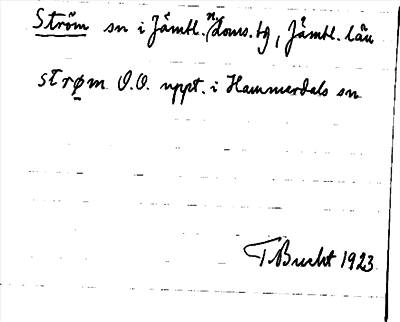 Ström sn i Jämtl. n. doms. tg, Jämtl. län
strøm O.O. uppt. i Hammerdals sn
T. Bucht 1923